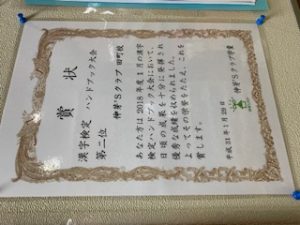 賞状
漢字検定 ハンドブック大会
第二位 伸芽'Sクラブ 田町校
あなた方は2018年度1月の漢字
検定ハンドブック大会において、
日頃の成果を十分に発揮され
優秀な成績を収められました。
よってその栄誉をたたえ、これを
賞します。
平成31年1月29日
伸芽'Sクラブ学童